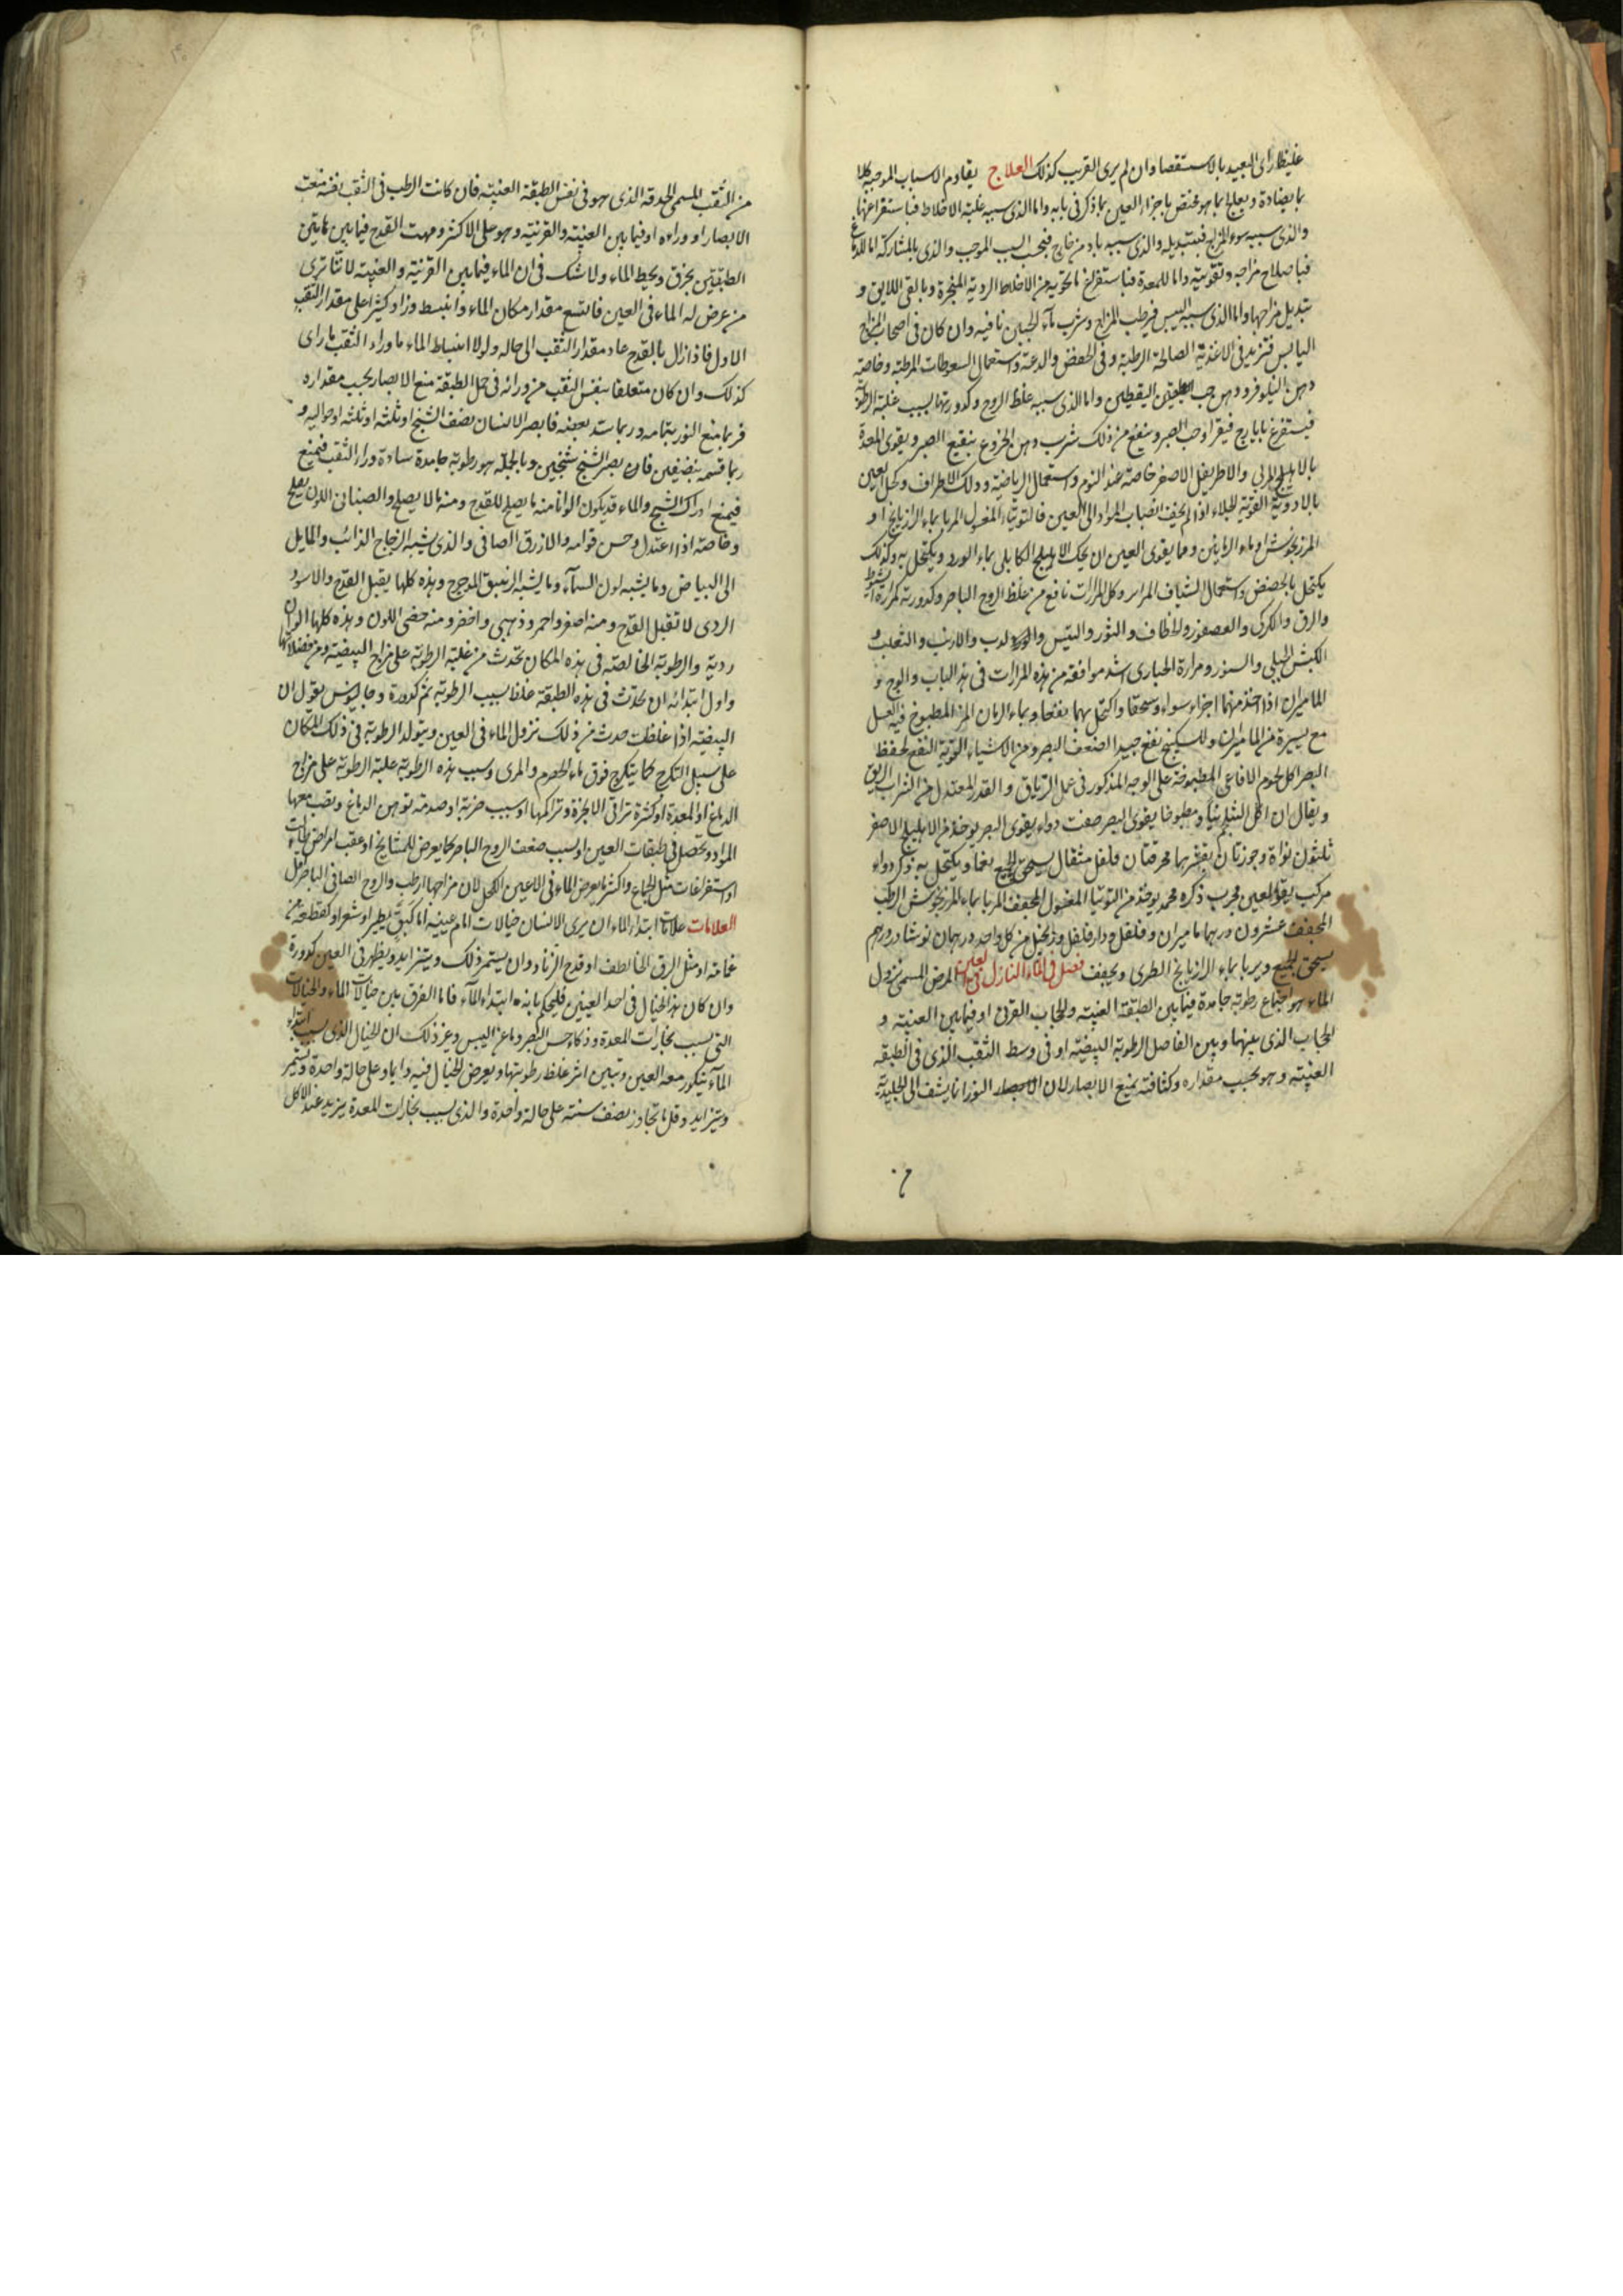 غليظا رأى البعيد بالاستقصا وان لم يرى القريب كذلك العلاج يقاوم الاسباب الموجبة كلا
بما يضادة ويعالج بما هو مختص باجزاء العين بما ذكر في بابه واما الذى سببه غلبة الاخلاط فباستفراغها
والذى سببه سوء المزاج فبتبديله والذى سببه باد من خارج فيجب السبب الموجب والذى بالمشاركة اما للدماغ
فباصلاح مزاجه وتقويته واما للمعدة فباستفراغ ما تحويه من الاخلاط الردية المنجرة وبالقى اللايق و
تبديل مزاجها واما الذى سببه اليبس فيرطب المزاج وشرب ماء الجبن نافيه وان كان في اصحاب المزاج
اليابس فتزيد في الاغذية الصالحة الرطبة وفى الخفض والدعة واستعمال السعوطات المرطبة وخاصة
دهن النيلوفر ودهن حب اليقطين واما الذى سببه غلظ الروح وكدورتها بسبب غلبة الرطوبة
فيستفرغ بايارج فيقرا وحب الصبر وينفع من ذلك شرب دهن الخروع بنقيع الصبر ويقوى المعدة
بالاهليلج المربي والاطريفل الاصغر خاصة عند النوم واستعمال الرياضة ودلك الاطراف وكحل العين
بالادوية القوية للجلاء اذا لم يخف انصباب المواد الى العين فالتوتياء المغسول المربا بماء الرازيانج او
المرزنجوش او ماء الرياحين ومما يقوى العين ان يحك الاهليلج الكابلى بماء الورد ويكتحل به وكذلك
يكتحل بالحضض واستعمال الشياف المراير وكل المرارات نافع من غلظ الروح الباصر وكدورته كمرارة الشبوط
والرق والكركى والعصفور والخطاف والثور والتيس والدب والارنب والثعلب و
الكبش الجبلى والسنور ومرارة الحبارى اشد موافقة من هذه المرارات في هذا الباب والوج و
الماميران اذا اخذ منهما اجزاء سواء وسحقا واكتحل بهما نفعا وماء الرمان المز المطبوخ فيه العسل
مع يسيرة من الماميران والسكبينج نفع جيد الضعف البصر ومن الاشياء القوية النفع لحفظ
البصر اكل لحوم الافاعى المطبوخة على الوجه المذكور في عمل الترياق والقدر المعتدل من الشراب الريق
ويقال ان اكل الشلجم نيا ومطبوخا يقوى البصر صفت دواء يقوى البصر يوخذ من الاهليلج الاصفر
ثلثون نواة وجوزتان بقشرهما محرقتان فلفل مثقال يسحق الجميع نعما ويكتحل به ذكر دواء
مركب يقوى العين مجرب ذكره محمد يوخذ من التوتيا المغسول المجفف المربا بماء المرزنجوش الرطب
المجفف عشرون درهما ماميران وفلفل ودار فلفل وزنجبيل من كل واحد درهمان نوشادر درهم
يسحق الجميع ويربا بماء الرازيانج الطرى ويجفف فصل في الماء النازل في العين المرض المسمى نزول
الماء هو اجتماع رطوبة جامدة فيما بين الطبقة العنبية والحجاب القرنى او فيما بين العنبية و
الحجاب الذى بينهما وبين الفاصل الرطوبة البيضية او فى وسط الثقب الذى فى الطبقه
العنبية وهو بحسب مقداره وكثافته يمنع الابصار لان الابصار النور انما يشف الى الجليدية
من الثقب المسمى الحدقه الذى هو فى نفس الطبقة العنبية فان كانت الرطب فى الثقب نفسه منعت
الابصار او وراءه او فيما بين العنبية والقرنية وهو على الاكثر ومهت القدح فيما بين هاتين
الطبقتين يخرق ويحيط الماء ولا شك فى ان الماء فيما بين القرنية والعنبية لاننا نرى
من عرض له الماء فى العين فاتسع مقدار مكان الماء وانبسط وزاد كثيرا على مقدار الثقب
الاول فاذا زال بالقدح عاد مقدار الثقب الى حاله ولولا انبساط الماء ما وراء الثقب ما راى
كذلك وان كان متعلقا بنفس الثقب من ورائه فى حمل الطبقة منع الابصار بحسب مقداره
فربما منع النور بتمامه وربما سد بعضه فابصر الانسان نصف الشبح او ثلثه او ثلثيه او حواليه و
ربما قسمه بنصفين فان يصر الشبح شبحين وبالجملة هو رطوبة جامدة سادة وراء الثقب فتمنع
فيمنع ادراك الشبح والماء قد يكون الوانا منه ما يصلح للقدح ومنه ما لا يصلح والصنابى اللون يصلح
وخاصة اذا اعتدل وحسن قوامه والازرق الصافى والذى شبه الزجاج الذائب والمايل
الى البياض وما يشبه لون السماء وما يشبه الزيبق المترجرج وهذه كلها يقبل القدح والاسود
الردى لا تقبل القدح ومنه اصفر واحمر وذهبى واخضر ومنه جصى اللون وهذه كلها الوان
ردية والرطوبة الخالصة فى هذه المكان تحدث من غلبة الرطوبة على مزاج البيضية ومن فضلاتها
واول ابتدائه ان يحدث فى هذه الطبقة غلظ بسبب الرطوبة ثم كدورة وجالينوس يقول ان
البيضية اذا غلظت حدث من ذلك نزول الماء فى العين ويتولد الرطوبة فى ذلك المكان
على سبيل التكرج كما يتكرج فوق ماء الحصرم والمرى وسبب هذه الرطوبة غلبة الرطوبة على مزاج
الدماغ او المعدة او كثرة تراقى الابخرة وتراكمها او سبب ضربة او صدمة توهن الدماغ وتصب معها
المواد وتحصل فى طبقات العين او بسبب ضعف الروح الباصر كما يعرض للمشايخ او عقب امراض طالت
او استفراغات مثل الجماع واكثر ما يعرض الماء فى الاعين الكحل لان مزاجها ارطب والروح الصافى الباصر اقل
العلامات علامات ابتداء الماء ان يرى الانسان خيالات امام عينيه اما كبق يطير او شعر او كقطعة من
غمامة او مثل البرق الخاطف او قدح الزناد وان يستمر ذلك ويتزايد ويظهر فى العين كدورة
وان كان هذا الخيال فى احد العينين فليحكم بانه ابتداء الماء فاما الفرق بين خيالات الماء والخيالات
التى بسبب بخارات المعدة وذكاء حس البصر وما عن اليبس وغير ذلك ان الخيال الذى بسبب ابتداء
الماء يتكدر معه العين وتبين اثر غلظ رطوبتها ويعرض الخيال فيه دايما وعلى حالة واحدة ويستمر
ويتزايد وقل ما تجاوز نصف سنة على حالة واحدة والذى بسبب بخارات المعدة يزيد عند الاكل